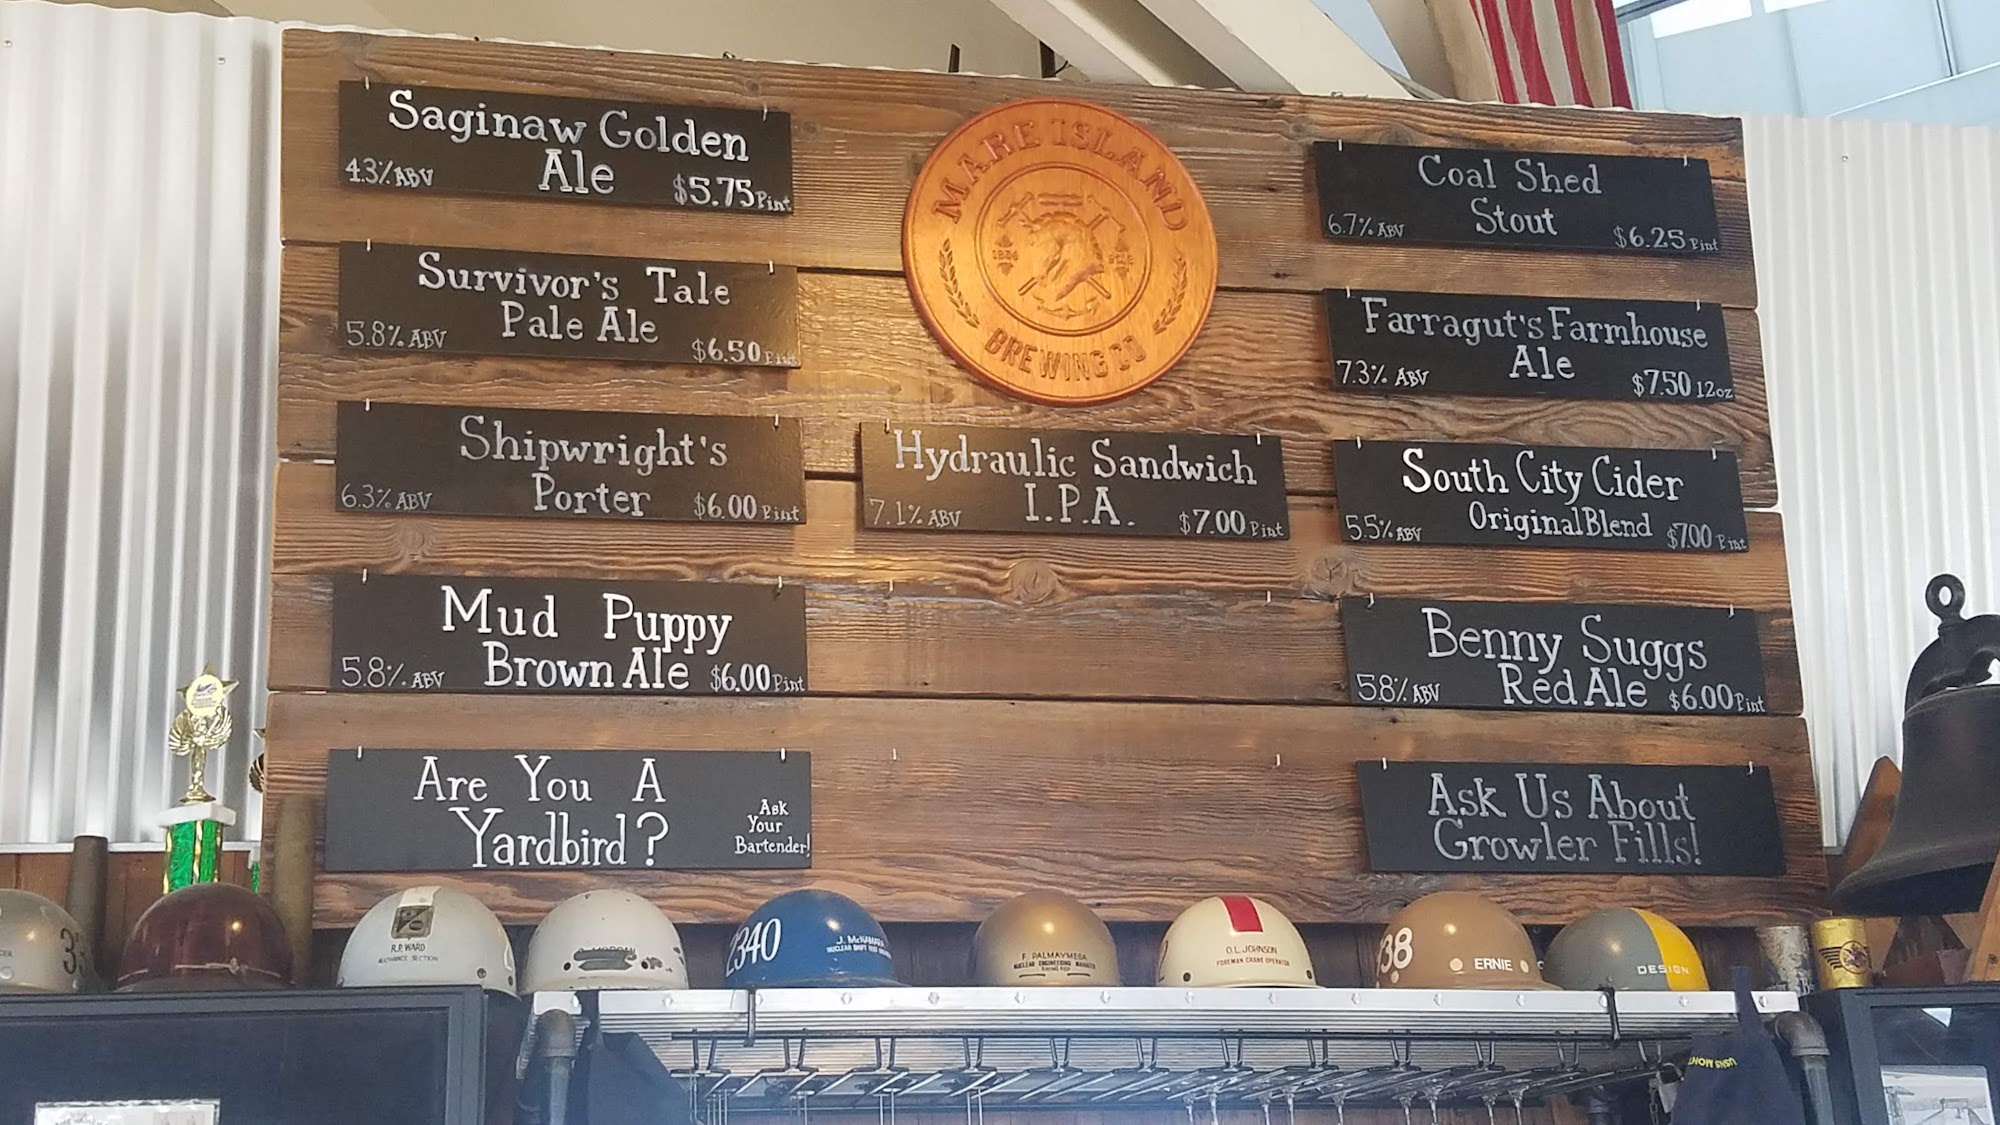 Saginaw Golden
Ale
4.3% ABV
$5.75 Pint
Survivor's Tale
Pale Ale
5.8% ABV
$6.50 Pint
Shipwright's
Porter
6.3% ABV
$6.00 Pint
Mud Puppy
Brown Ale
5.8% ABV
$6.00 Pint
Are You A
Yardbird?
Ask
Your
Bartender!
MARE ISLAND
BREWING CO
Hydraulic Sandwich
I.P.A.
7.1% ABV
$7.00 Pint
Coal Shed
Stout
6.7% ABV
$6.25 Pint
Farragut's Farmhouse
Ale
7.3% ABV
$7.50 12oz
South City Cider
Original Blend
5.5% ABV
$7.00 Pint
Benny Suggs
Red Ale
5.8% ABV
$6.00 Pint
Ask Us About
Growler Fills!
33
R.P. WARD
MORGAN
2340
J. McNAMARA
F. PALMAYMESA
NUCLEAR ENGINEERING MANAGER
O.L. JOHNSON
FOREMAN CRANE OPERATOR
38
ERNIE
DESIGN
USNS MONT